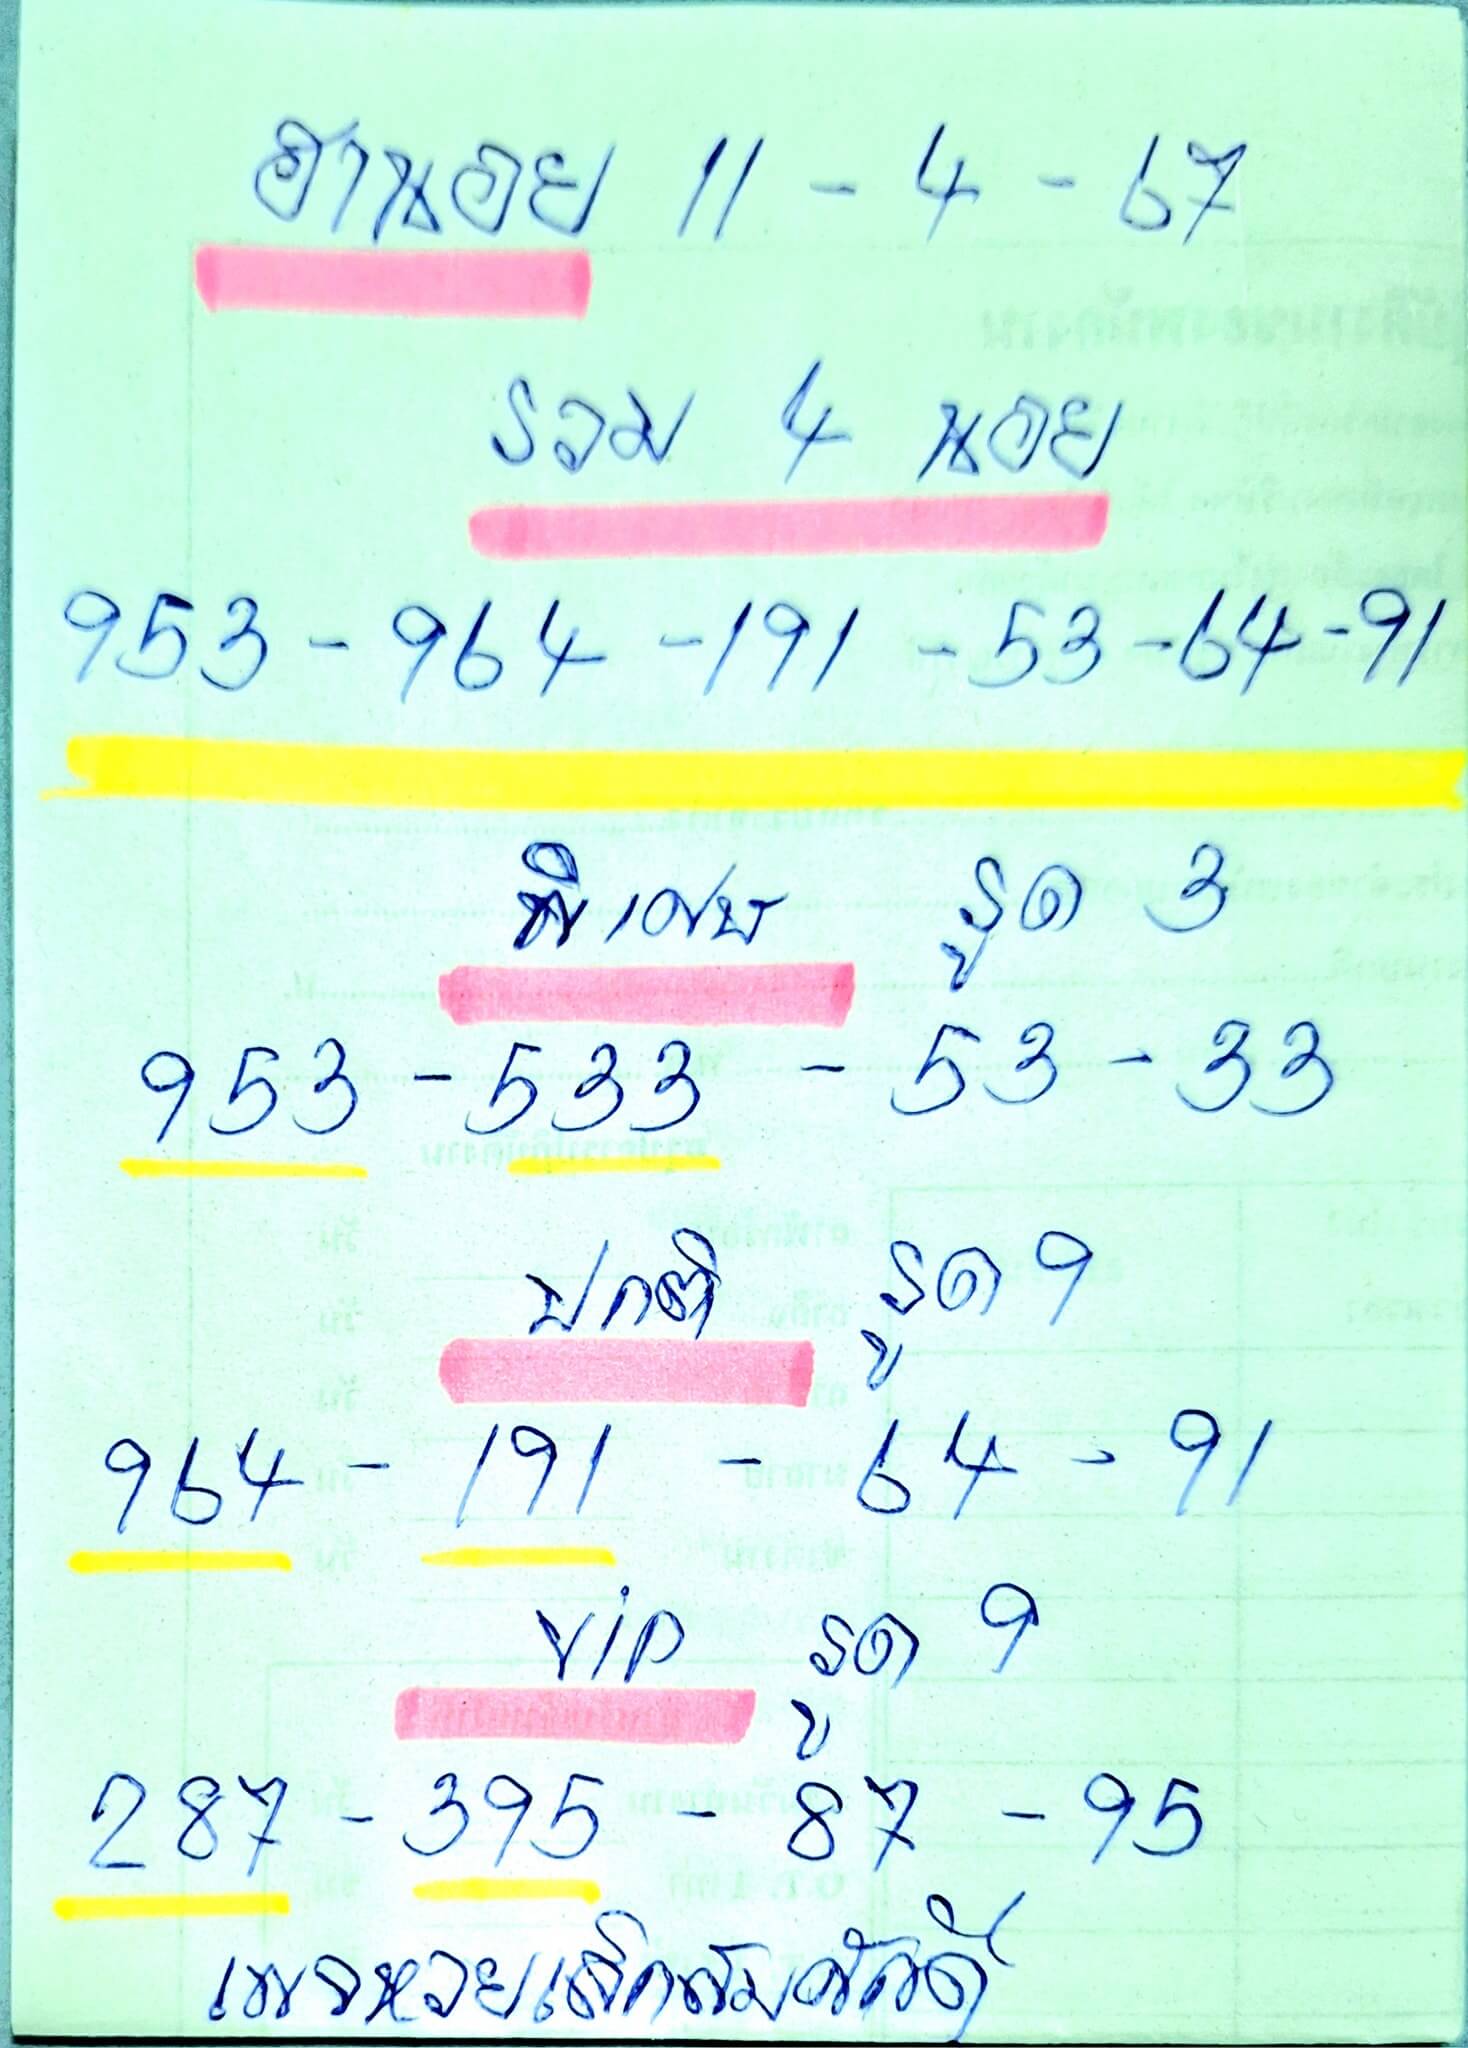 ฮานอย 11 - 4 - 67
รวม 4 นอย
953 - 964 - 191 - 53 - 64 - 91
พิเศษ รูด 3
953 - 533 - 53 - 33
ปกติ รูด 9
964 - 191 - 64 - 91
vip รูด 9
287 - 395 - 87 - 95
เพจหวยเสือสมศักดิ์